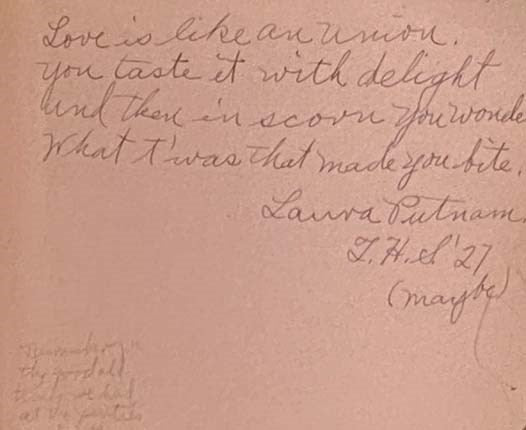 Love is like an union.
you taste it with delight
and then in scorn you wonde
What t'was that made you bite.
Laura Putnam.
T.H.S '27
(maybe)
the good old
at the parties